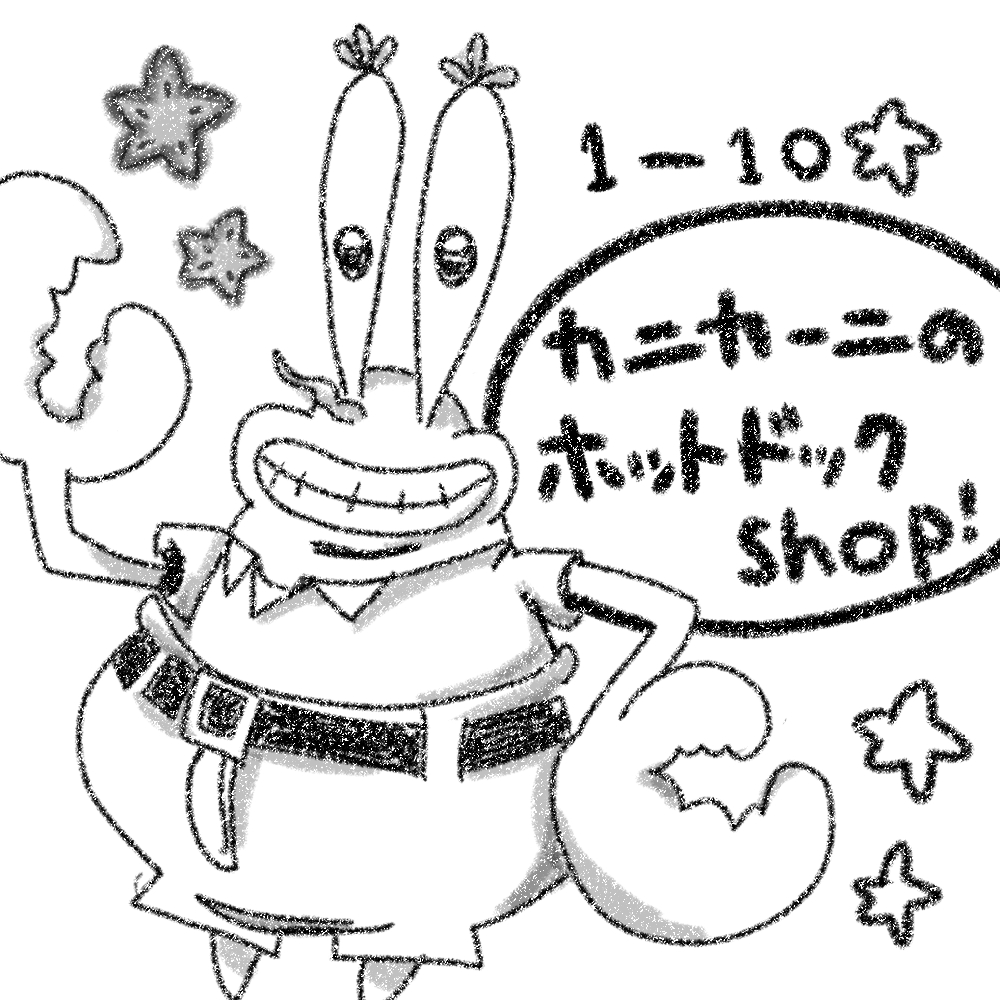 1-10
カニカーニの
ホットドック
shop!